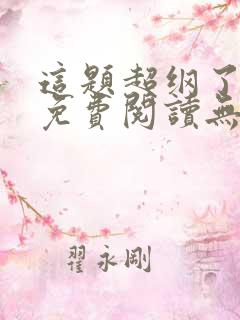 這題超纲了
免費閱讀無
翟永剛